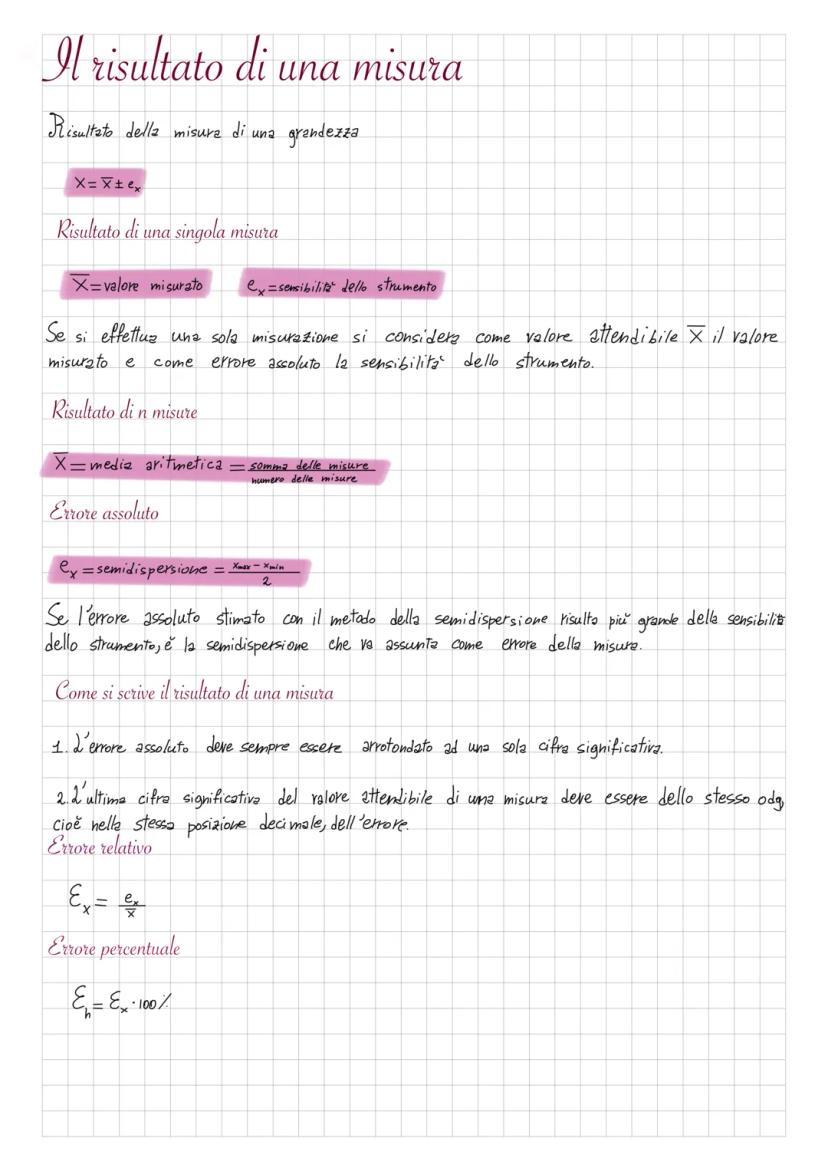 Il risultato di una misura
Risultato della misura di una grandezza
X = X̅ ± eₓ
Risultato di una singola misura
X̅ = valore misurato eₓ = sensibilità dello strumento
Se si effettua una sola misurazione si considera come valore attendibile X̅ il valore
misurato e come errore assoluto la sensibilità dello strumento.
Risultato di n misure
X̅ = media aritmetica = somma delle misure / numero delle misure
Errore assoluto
eₓ = semidispersione = (xmax − xmin) / 2
Se l'errore assoluto stimato con il metodo della semidispersione risulta più grande della sensibilità
dello strumento, è la semidispersione che va assunta come errore della misura.
Come si scrive il risultato di una misura
1. L'errore assoluto deve sempre essere arrotondato ad una sola cifra significativa.
2. L'ultima cifra significativa del valore attendibile di una misura deve essere dello stesso odg,
cioè nella stessa posizione decimale, dell'errore.
Errore relativo
Ɛₓ = eₓ / x̅
Errore percentuale
Ɛₕ = Ɛₓ · 100%